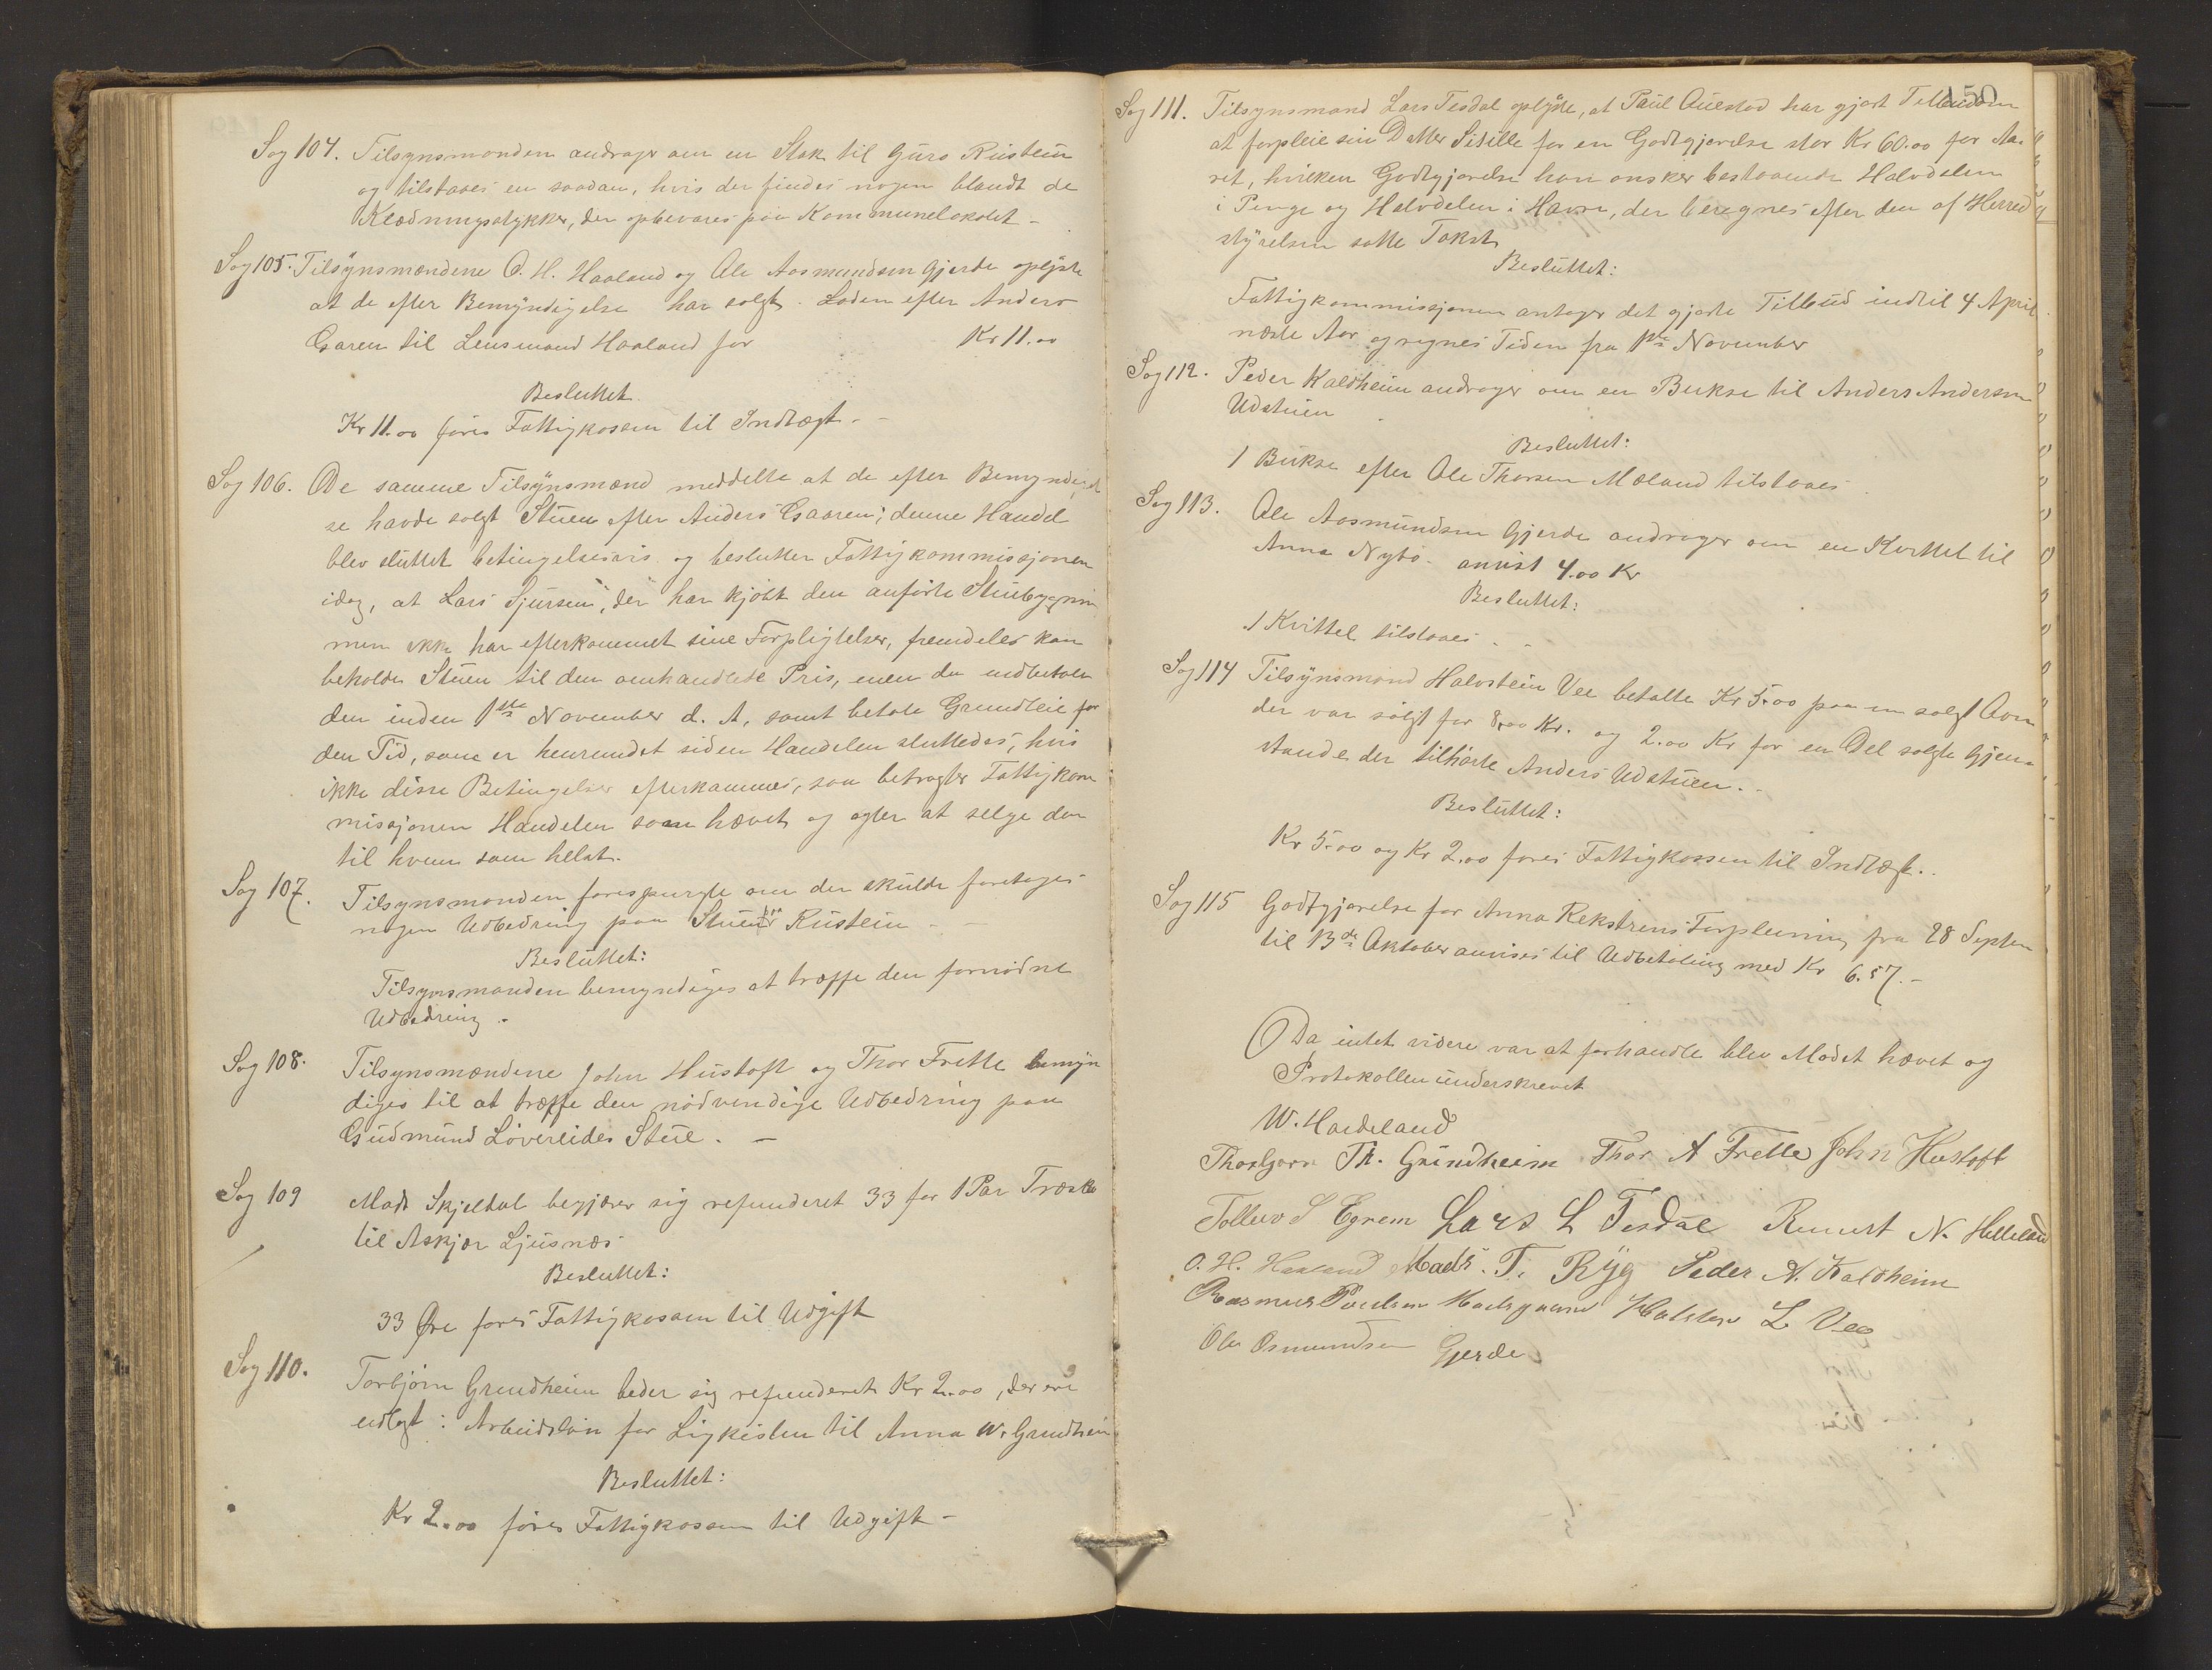 Sag 104. Tilsynsmanden andrager om en Stak til Guro Rustein
og tilstaaes en saadan, hvis der findes nogen blandt de
Klædningsstykker, der opbevares paa Kommunelokalet -
Sag 105. Tilsynsmændene O. H. Haaland og Ole Aasmundsen Gjerde oplyste
at de efter Bemyndigelse har solgt Loden efter Anders
Garen til Lensmand Haaland for Kr 11.00
Besluttet
Kr 11.00 føres Fattigkassen til Indtægt -
Sag 106. De samme Tilsynsmænd meddelte at de efter Bemyndigel
se havde solgt Stuen efter Anders Gaaren; denne Handel
blev sluttet betingelsesvis og beslutter Fattigkommissjonen
idag, at Lars Sjursen, der har kjøbt den anførte Stuebygnin
men ikke har efterkommet sine Forpligtelser, fremdeles kan
beholde Stuen til den omhandlede Pris, naar den indbetales
den inden 1ste November d. A, samt betale Grundleie for
den Tid, som er henrundet siden Handelen sluttedes, hvis
ikke disse Betingelser efterkommes, saa betragter Fattigkom
missjonen Handelen som hævet og agter at selge den
til hvem som helst.
Sag 107. Tilsynsmanden forespurgte om der skulde foretages
nogen Udbedring paa Stuen paa Rustein -
Besluttet:
Tilsynsmanden bemyndiges at træffe den fornødne
Udbedring.
Sag 108. Tilsynsmændene John Hustoft og Thor Frette bemyn
diges til at træffe den nødvendige Udbedring paa
Gudmund Løvereides Stue. -
Sag 109 Mads Skjeldal begjærer sig refunderet 33 for 1 Par Træsko
til Askjær Ljusnæs
Besluttet:
33 Øre føres Fattigkassen til Udgift
Sag 110. Torbjørn Grindheim beder sig refunderet Kr 2.00, der ere
udlagt: Arbeidsløn for Ligkisten til Anna W. Grindheim
Besluttet:
Kr 2.00 føres Fattigkassen til Udgift -
150
Sag 111. Tilsynsmand Lars Tesdal oplyste, at Paul Auestad har gjort Tilbud om
at forpleie sin Datter Sisille for en Godtgjørelse stor Kr 60.00 for Aa-
ret, hvilken Godtgjørelse han ønsker bestaaende Halvdelen
i Penge og Halvdelen i Havre, der beregnes efter den af Herred
styrelsen satte Takst
Besluttet:
Fattigkommissjonen antager det gjorte Tilbud indtil 4 April
næste Aar og regnes Tiden fra 1ste November
Sag 112. Peder Kaldheim andrager om en Bukse til Anders Andersen
Udstuen
Besluttet:
1 Bukse efter Ole Thorsen Mæland tilstaaes
Sag 113. Ole Aasmundsen Gjerde andrager om en Kvittel til
Anna Nybø. anvist 4.00 Kr
Besluttet:
1 Kvittel tilstaaes - -
Sag 114 Tilsynsmand Halvstein Vee betalte Kr 5.00 paa en solgt Ovn
der var solgt for 8.00 Kr. og 2.00 Kr for en Del solgte Gjen-
stande der tilhørte Anders Udstuen. -
Besluttet:
Kr 5.00 og Kr 2.00 føres Fattigkassen til Indtægt. .
Sag 115 Godtgjørelse for Anna Rekstrens Forpleining fra 28 Septem
til 13de Oktober anvises til Udbetaling med Kr 6.57. -
Da intet videre var at forhandle blev Mødet hævet og
Protokollen underskrevet
W. Hardeland
Thorbjørn Th. Grindheim Thor A Frette John Hustoft
Tollev S Egrem Lars L Tesdal Reinert N. Helleland
O. H. Haaland Mads. T. Ryg Peder A. Kaldheim
Rasmus Poulsen Halsten L Vee
Ole Osmundsen Gjerde